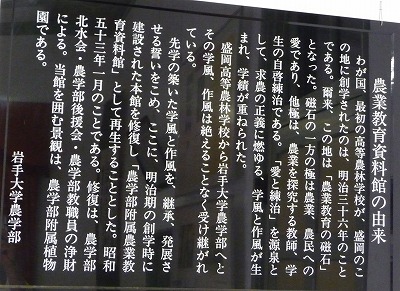 農業教育資料館の由来
わが国、最初の高等農林学校が、盛岡のこ
の地に創学されたのは、明治三十六年のこと
である。爾来、この地は「農業教育の磁石」
となった。磁石の一方の極は農業、農民への
愛であり、他極は、農業を探究する教師、学
生の自啓練治である。「愛と練治」を源泉と
して、求農の正義に燃ゆる、学風と作風が生
まれ、学績が重ねられた。
盛岡高等農林学校から岩手大学農学部へと
その学風、作風は絶えることなく受け継がれ
ている。
先学の築いた学風と作風を、継承、発展さ
せる誓いをこめ、ここに、明治期の創学時に
建設された本館を修復し、「農学部附属農業教
育資料館」として再生することとした。昭和
五十三年一月のことである。修復は、農学部
北水会・農学部後援会・農学部教職員の浄財
による。当館を囲む景観は、農学部附属植物
園である。
岩手大学農学部